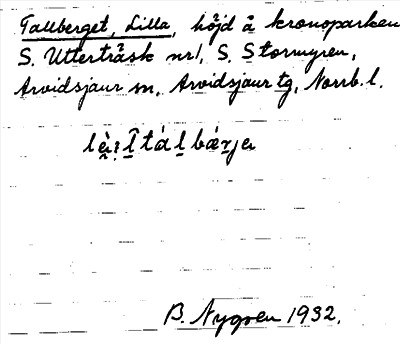 Tallberget, Lilla, höjd å kronoparken
S. Utterträsk nr 1, S. Stormyren,
Arvidsjaur sn, Arvidsjaur tg, Norrb. l.
B. Nygren 1932.